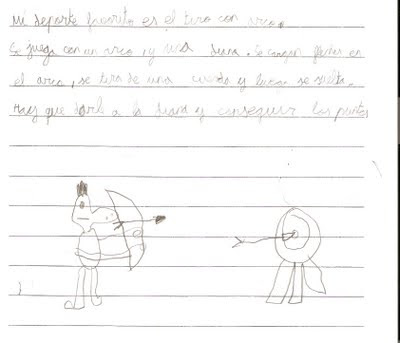 Mi deporte favorito es el tiro con arco.
Se juega con un arco, y una diana. Se cargan flechas en
el arco, se tira de una cuerda y luego se suelta.
Hay que darle a la diana y conseguir los puntos